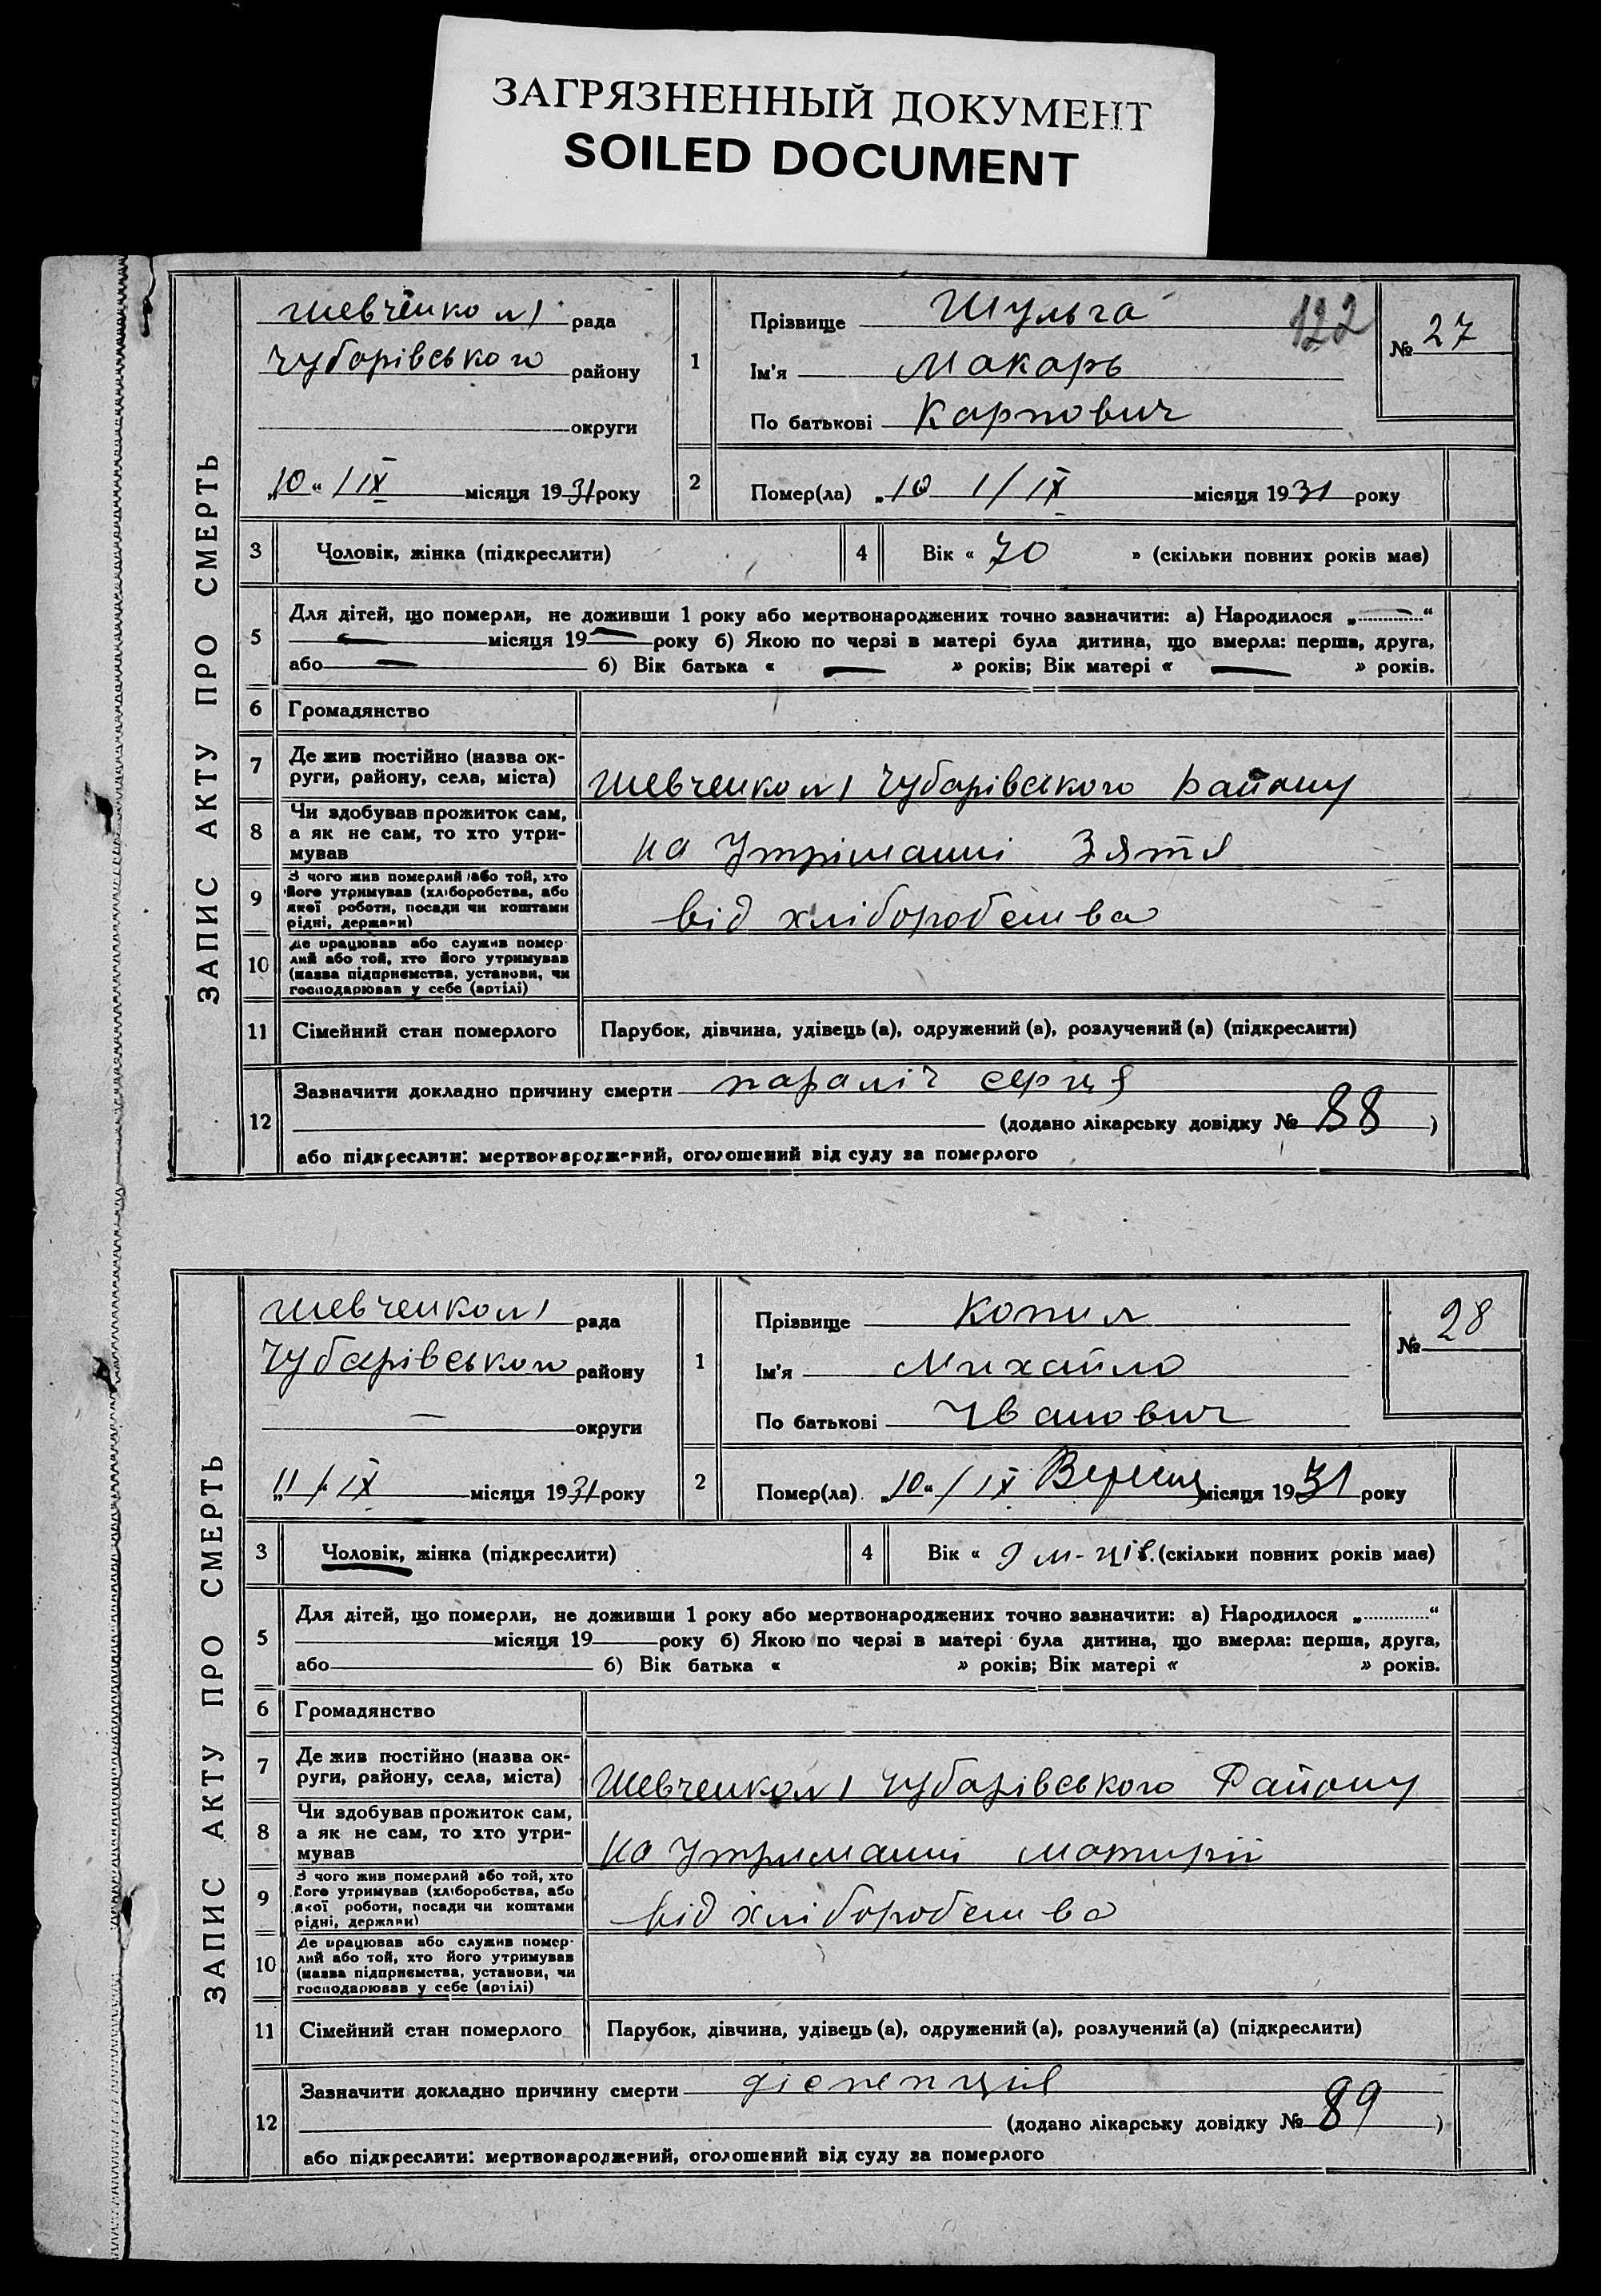 ЗАГРЯЗНЕННЫЙ ДОКУМЕНТ
SOILED DOCUMENT
ЗАПИС АКТУ ПРО СМЕРТЬ
Шевченко №1 рада
Чубарівського району
округи
„10“ / IX місяця 1931 року
1
Прізвище Шульга
122
№ 27
Ім'я Макарь
По батькові Карпович
2
Помер(ла) „10 1/IX місяця 1931 року
3 Чоловік, жінка (підкреслити)
4 Вік « 70 » (скільки повних років має)
5
Для дітей, що померли, не доживши 1 року або мертвонароджених точно зазначити: а) Народилося „ — “
— місяця 19 — року б) Якою по черзі в матері була дитина, що вмерла: перша, друга,
або — б) Вік батька « — » років; Вік матері « — » років.
6 Громадянство
7
Де жив постійно (назва ок-
руги, району, села, міста)
Шевченко №1 Чубарівського Району
8
Чи здобував прожиток сам,
а як не сам, то хто утри-
мував
на Утріманні Зятя
9
З чого жив померлий або той, хто
його утримував (хліборобства, або
якої роботи, посади чи коштами
рідні, держави)
від хліборобства
10
Де працював або служив помер-
лий або той, хто його утримував
(назва підприємства, установи, чи
господарював у себе (артілі)
11 Сімейний стан померлого
Парубок, дівчина, удівець (а), одружений (а), розлучений (а) (підкреслити)
12
Зазначити докладно причину смерти параліч серця
(додано лікарську довідку № 88 )
або підкреслити: мертвонароджений, оголошений від суду за померлого
ЗАПИС АКТУ ПРО СМЕРТЬ
Шевченко №1 рада
Чубарівського району
— округи
„11 / IX місяця 1931 року
1
Прізвище Копил
№ 28
Ім'я Михайло
По батькові Іванович
2
Помер(ла) „10“ / IX Вересня місяця 1931 року
3 Чоловік, жінка (підкреслити)
4 Вік « 9 м-ців. (скільки повних років має)
5
Для дітей, що померли, не доживши 1 року або мертвонароджених точно зазначити: а) Народилося „ “
місяця 19 року б) Якою по черзі в матері була дитина, що вмерла: перша, друга,
або б) Вік батька « » років; Вік матері « » років.
6 Громадянство
7
Де жив постійно (назва ок-
руги, району, села, міста)
Шевченко №1 Чубарівського Району
8
Чи здобував прожиток сам,
а як не сам, то хто утри-
мував
на Утриманні матирії
9
З чого жив померлий або той, хто
його утримував (хліборобства, або
якої роботи, посади чи коштами
рідні, держави)
від хліборобства
10
Де працював або служив помер-
лий або той, хто його утримував
(назва підприємства, установи, чи
господарював у себе (артілі)
11 Сімейний стан померлого
Парубок, дівчина, удівець (а), одружений (а), розлучений (а) (підкреслити)
12
Зазначити докладно причину смерти діспепция
(додано лікарську довідку № 89 )
або підкреслити: мертвонароджений, оголошений від суду за померлого